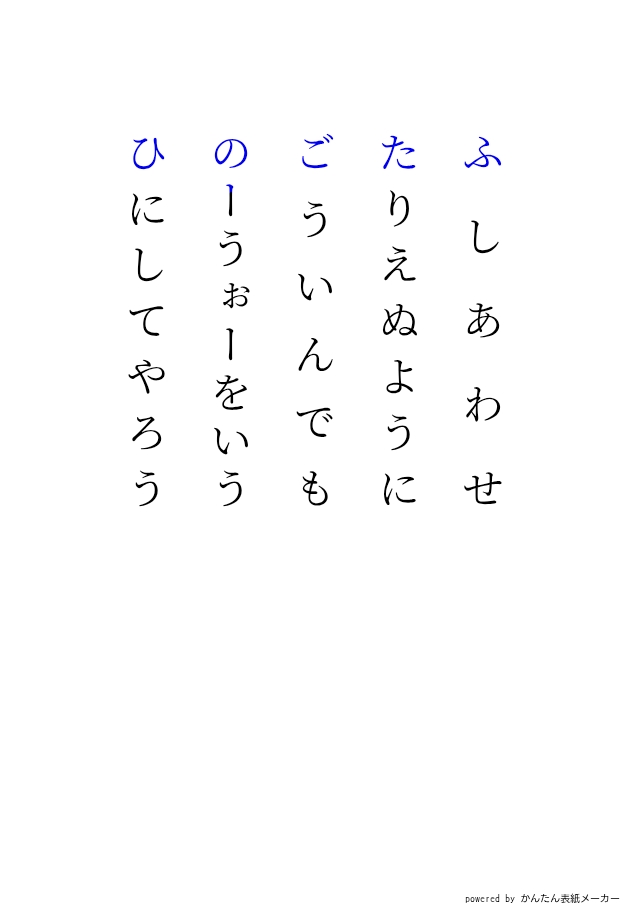 ふしあわせ
たりえぬように
ごういんでも
のーうぉーをいう
ひにしてやろう
powered by かんたん表紙メーカー